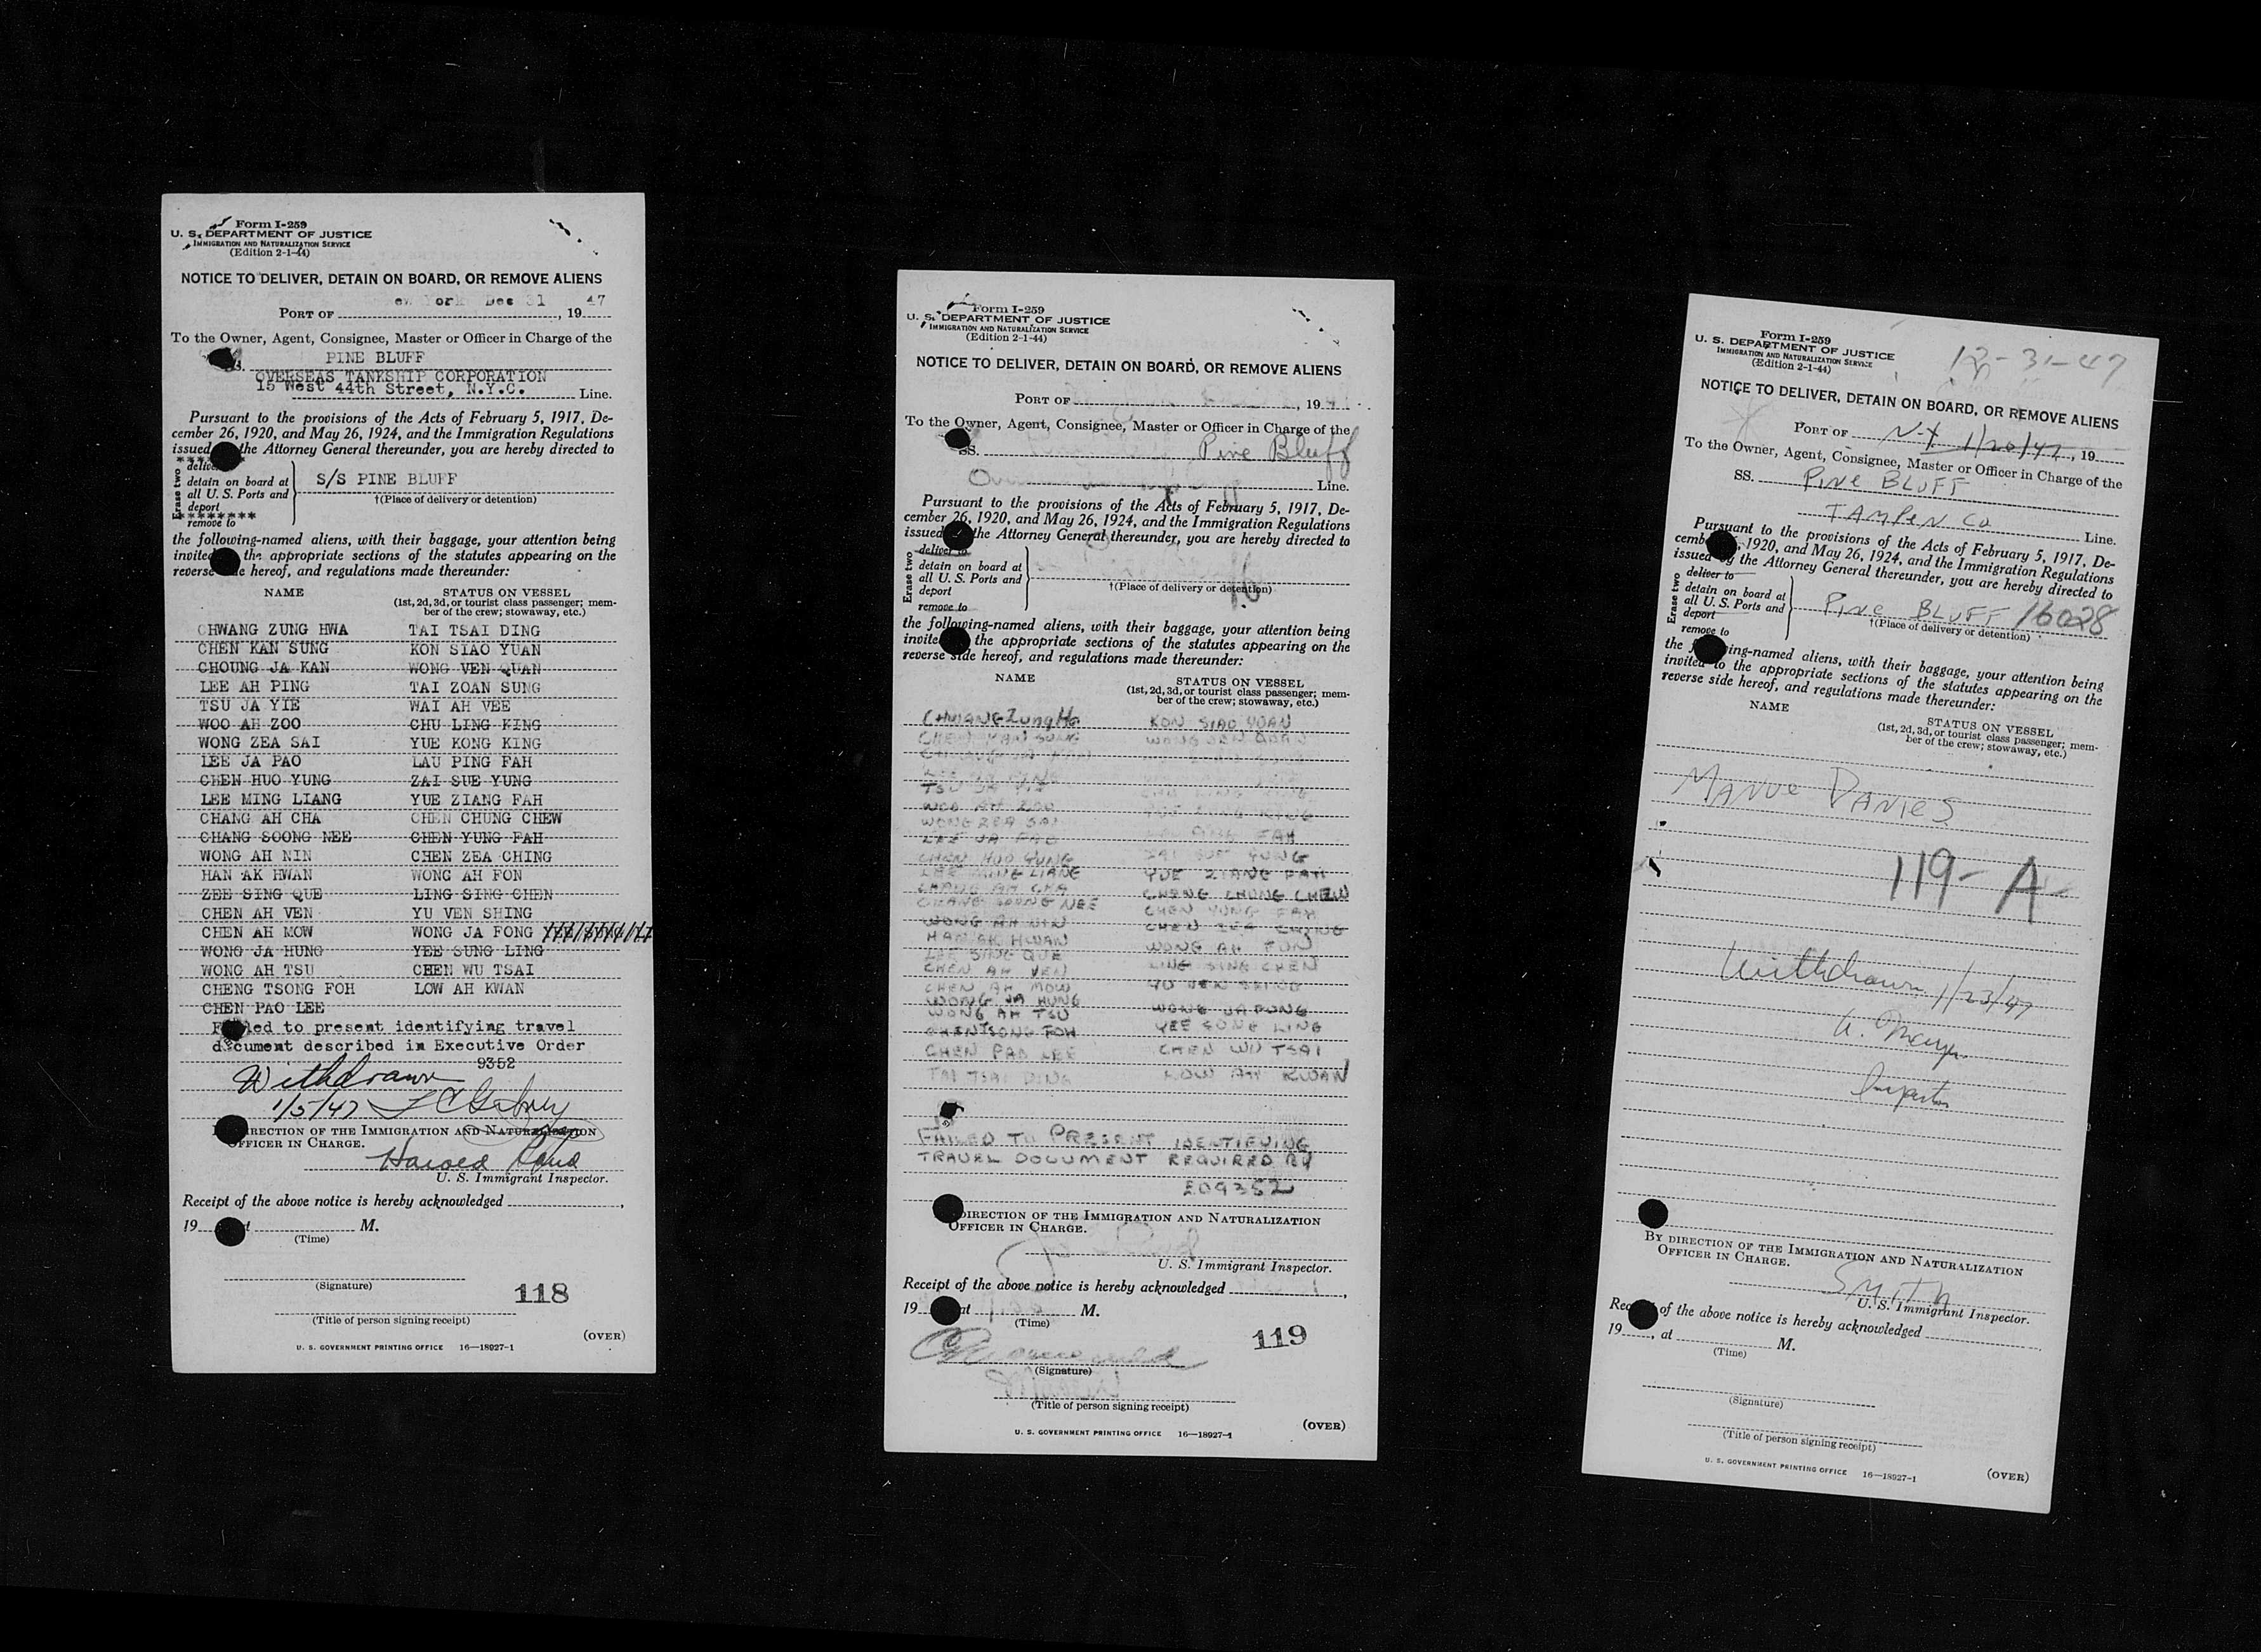 Form I-259
U. S. DEPARTMENT OF JUSTICE
IMMIGRATION AND NATURALIZATION SERVICE
(Edition 2-1-44)
NOTICE TO DELIVER, DETAIN ON BOARD, OR REMOVE ALIENS
ew York Dec 31 47
PORT OF , 19
To the Owner, Agent, Consignee, Master or Officer in Charge of the
PINE BLUFF
OVERSEAS TANKSHIP CORPORATION
15 West 44th Street, N.Y.C. Line.
Pursuant to the provisions of the Acts of February 5, 1917, De-
cember 26, 1920, and May 26, 1924, and the Immigration Regulations
issued the Attorney General thereunder, you are hereby directed to
Erase two
deliver
detain on board at
all U. S. Ports and
deport
remove to
S/S PINE BLUFF
†(Place of delivery or detention)
the following-named aliens, with their baggage, your attention being
invited the appropriate sections of the statutes appearing on the
reverse hereof, and regulations made thereunder:
NAME STATUS ON VESSEL
(1st, 2d, 3d, or tourist class passenger; mem-
ber of the crew; stowaway, etc.)
CHWANG ZUNG HWA TAI TSAI DING
CHEN KAN SUNG KON SIAO YUAN
CHOUNG JA KAN WONG VEN QUAN
LEE AH PING TAI ZOAN SUNG
TSU JA YIE WAI AH VEE
WOO AH ZOO CHU LING KING
WONG ZEA SAI YUE KONG KING
LEE JA PAO LAU PING FAH
CHEN HUO YUNG ZAI SUE YUNG
LEE MING LIANG YUE ZIANG FAH
CHANG AH CHA CHEN CHUNG CHEW
CHANG SOONG NEE CHEN YUNG FAH
WONG AH NIN CHEN ZEA CHING
HAN AK HWAN WONG AH FON
ZEE SING QUE LING SING CHEN
CHEN AH VEN YU VEN SHING
CHEN AH MOW WONG JA FONG
WONG JA HUNG YEE SUNG LING
WONG AH TSU CHEN WU TSAI
CHENG TSONG FOH LOW AH KWAN
CHEN PAO LEE
Failed to present identifying travel
document described in Executive Order
9352
Withdrawn
1/5/47
DIRECTION OF THE IMMIGRATION AND NATURALIZATION
OFFICER IN CHARGE.
Harold
U. S. Immigrant Inspector.
Receipt of the above notice is hereby acknowledged ,
19 M.
(Time)
(Signature)
118
(Title of person signing receipt)
(OVER)
U. S. GOVERNMENT PRINTING OFFICE 16—18927-1
Form I-259
U. S. DEPARTMENT OF JUSTICE
IMMIGRATION AND NATURALIZATION SERVICE
(Edition 2-1-44)
NOTICE TO DELIVER, DETAIN ON BOARD, OR REMOVE ALIENS
PORT OF , 19
To the Owner, Agent, Consignee, Master or Officer in Charge of the
SS. Pine Bluff
Line.
Pursuant to the provisions of the Acts of February 5, 1917, De-
cember 26, 1920, and May 26, 1924, and the Immigration Regulations
issued the Attorney General thereunder, you are hereby directed to
Erase two
deliver to
detain on board at
all U. S. Ports and
deport
remove to
†(Place of delivery or detention)
the following-named aliens, with their baggage, your attention being
invited the appropriate sections of the statutes appearing on the
reverse side hereof, and regulations made thereunder:
NAME STATUS ON VESSEL
(1st, 2d, 3d, or tourist class passenger; mem-
ber of the crew; stowaway, etc.)
CHWANG Zung Ha KON SIAO YUAN
CHEN KAN SUNG WONG VEN QUAN
TSU JA YIE
WOO AH ZOO
WONG ZEA SAI
LEE JA PAO PING FAH
CHEN HUO YUNG ZAI SUE YUNG
LEE MING LIANG YUE ZIANG FAH
CHANG AH CHA CHENG CHUNG CHEW
CHANG SOONG NEE CHEN YUNG FAH
WONG AH NIN CHEN ZEA CHING
HAN AK HWAN WONG AH FON
ZEE SING QUE LING SING CHEN
CHEN AH VEN YU VEN SHING
CHEN AH MOW
WONG JA HUNG WONG JA FONG
WONG AH TSU YEE SUNG LING
CHEN TSONG FOH CHEN WU TSAI
CHEN PAO LEE LOW AH KWAN
TAI TSAI DING
FAILED TO PRESENT IDENTIFYING
TRAVEL DOCUMENT REQUIRED BY
EO9352
DIRECTION OF THE IMMIGRATION AND NATURALIZATION
OFFICER IN CHARGE.
U. S. Immigrant Inspector.
Receipt of the above notice is hereby acknowledged ,
19 at M.
(Time)
119
(Signature)
(Title of person signing receipt)
(OVER)
U. S. GOVERNMENT PRINTING OFFICE 16—18927-1
Form I-259
U. S. DEPARTMENT OF JUSTICE
IMMIGRATION AND NATURALIZATION SERVICE
(Edition 2-1-44)
12-31-47
NOTICE TO DELIVER, DETAIN ON BOARD, OR REMOVE ALIENS
PORT OF N-Y 1/20/47, 19
To the Owner, Agent, Consignee, Master or Officer in Charge of the
SS. PINE BLUFF
TAMPEN CO Line.
Pursuant to the provisions of the Acts of February 5, 1917, De-
cember 1920, and May 26, 1924, and the Immigration Regulations
issued by the Attorney General thereunder, you are hereby directed to
Erase two
deliver to
detain on board at
all U. S. Ports and
deport
remove to
PINE BLUFF 16028
†(Place of delivery or detention)
the following-named aliens, with their baggage, your attention being
invited to the appropriate sections of the statutes appearing on the
reverse side hereof, and regulations made thereunder:
NAME STATUS ON VESSEL
(1st, 2d, 3d, or tourist class passenger; mem-
ber of the crew; stowaway, etc.)
MANUE DANIES
119-A-
Withdrawn 1/23/47
Inspector
BY DIRECTION OF THE IMMIGRATION AND NATURALIZATION
OFFICER IN CHARGE.
SMITH
U. S. Immigrant Inspector.
Receipt of the above notice is hereby acknowledged ,
19 , at M.
(Time)
(Signature)
(Title of person signing receipt)
(OVER)
U. S. GOVERNMENT PRINTING OFFICE 16—18927-1